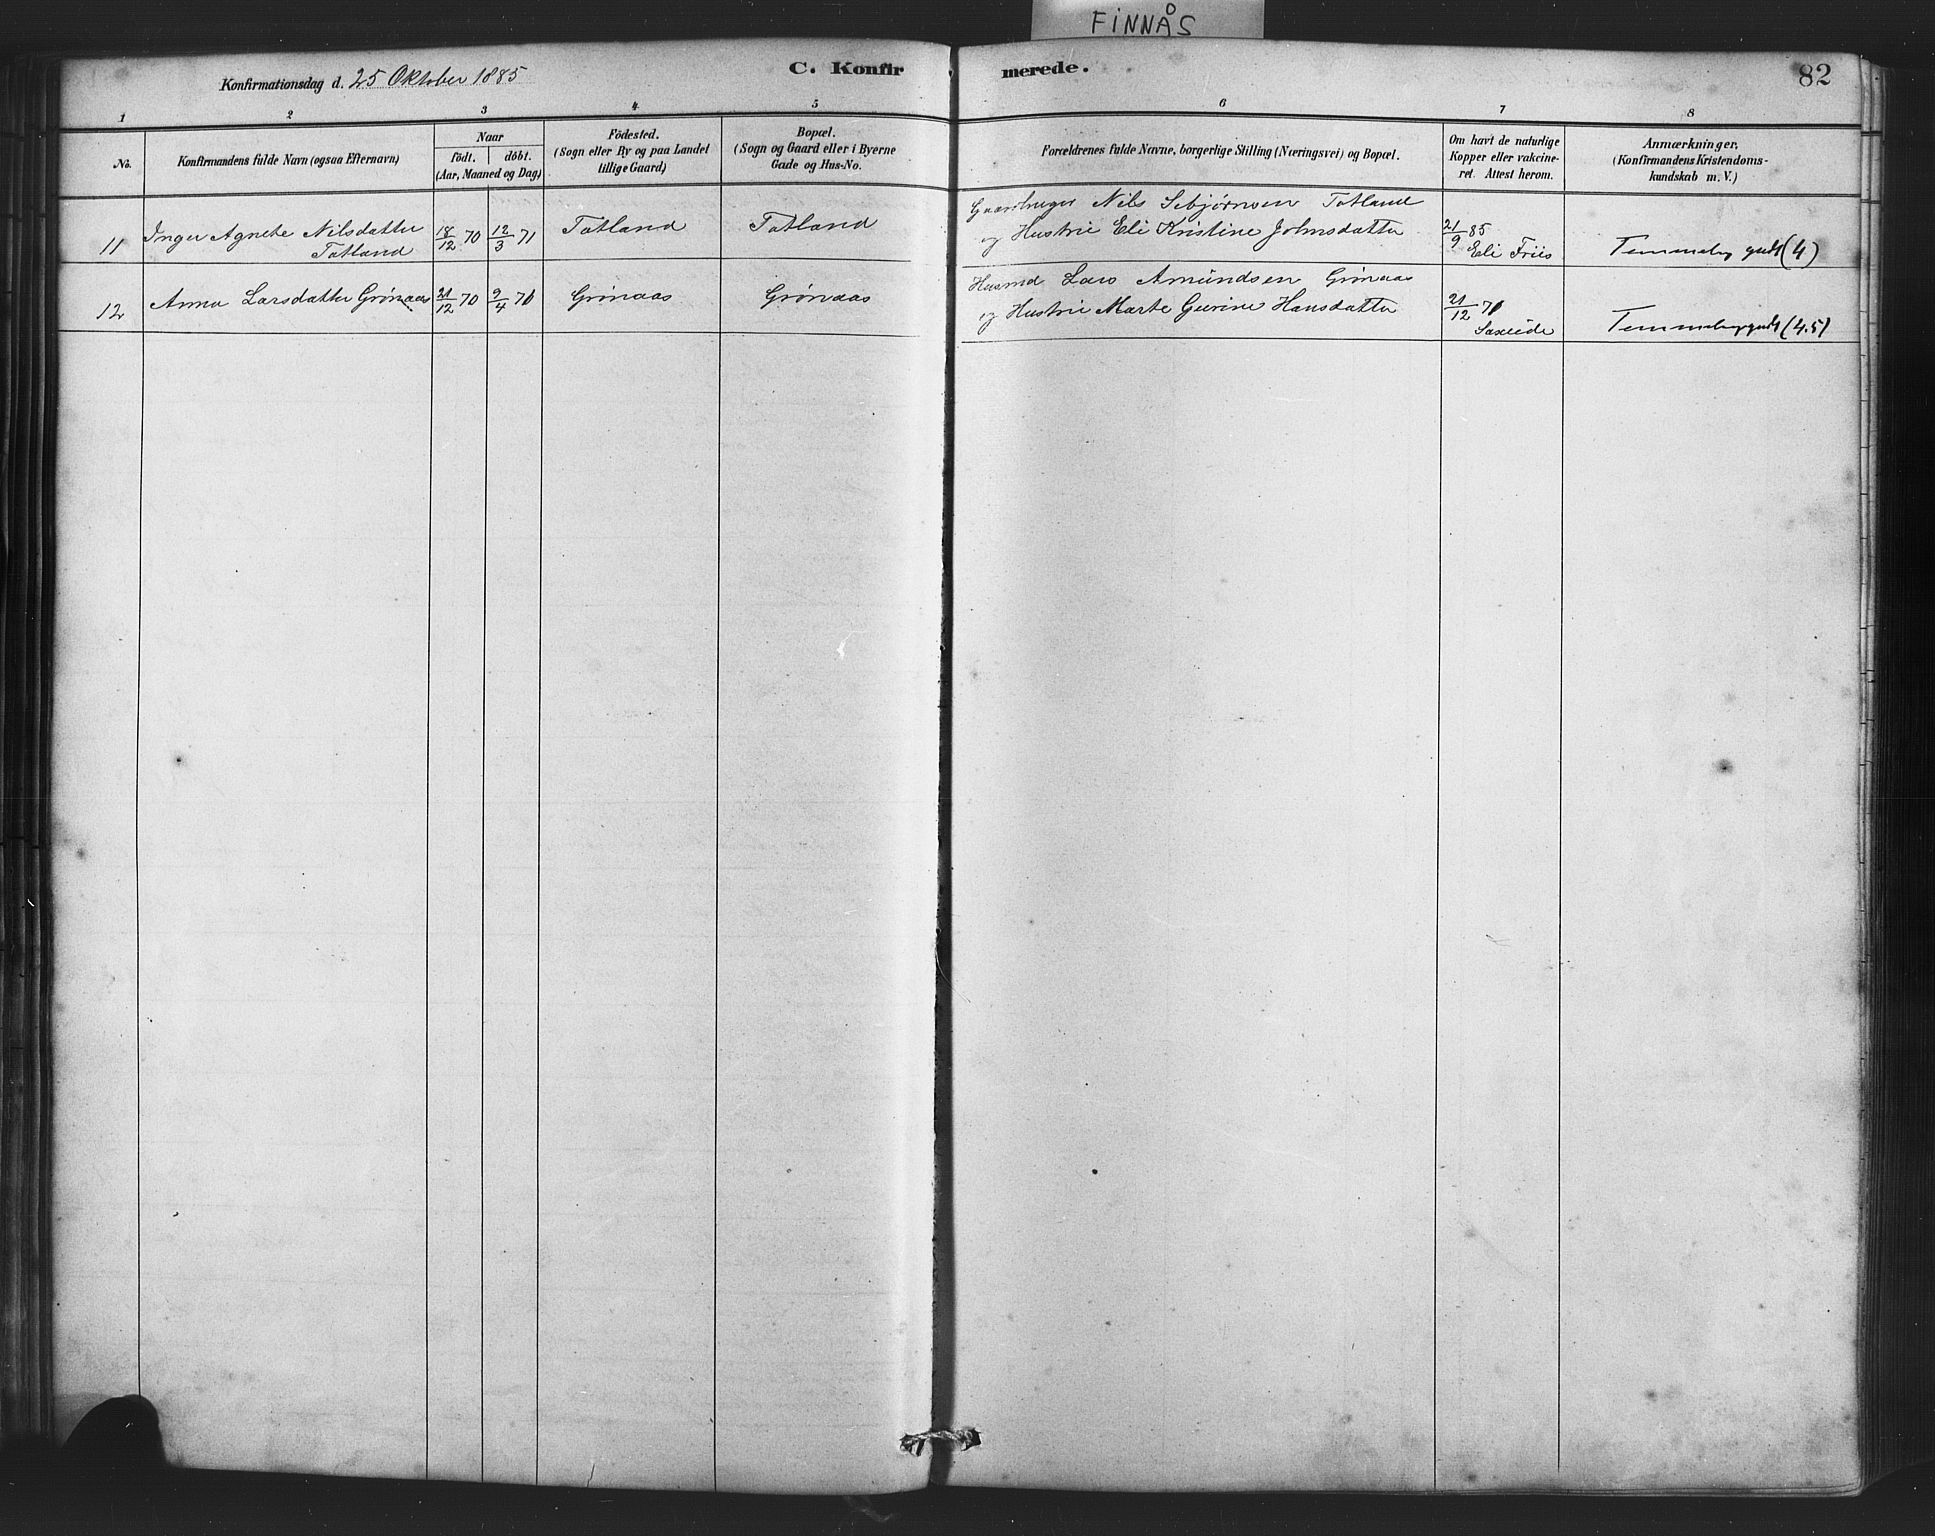 FINNÅS
Konfirmationsdag d. 25 Oktober 1885
C. Konfir merede.
82
1 2 3 4 5 6 7 8
No.
Konfirmandens fulde Navn (ogsaa Efternavn)
Naar
födt. döbt.
(Aar, Maaned og Dag)
Födested.
(Sogn eller By og paa Landet
tillige Gaard)
Bopæl.
(Sogn og Gaard eller i Byerne
Gade og Hus-No.
Forældrenes fulde Navne, borgerlige Stilling (Næringsvei) og Bopæl.
Om havt de naturlige
Kopper eller vakcine-
ret. Attest herom.
Anmærkninger,
(Konfirmandens Kristendoms-
kundskab m. V.)
11 Inger Agnete Nilsdatter
Totland
18/12 70 12/3 71 Totland Totland
Gaardbruger Nils Sebjørnsen Totland
og Hustrue Eli Kristine Johnsdatter
21/9 85
Eli Friis
Temmelig godt (4)
12 Anna Larsdatter Grönaas 21/12 70 9/4 71 Grönaas Grönaas
Husmd Lars Amundsen Grönaas
og Hustrue Marte Gurine Hansdatter
21/12 71
Saxeide
Temmelig godt (4.5)